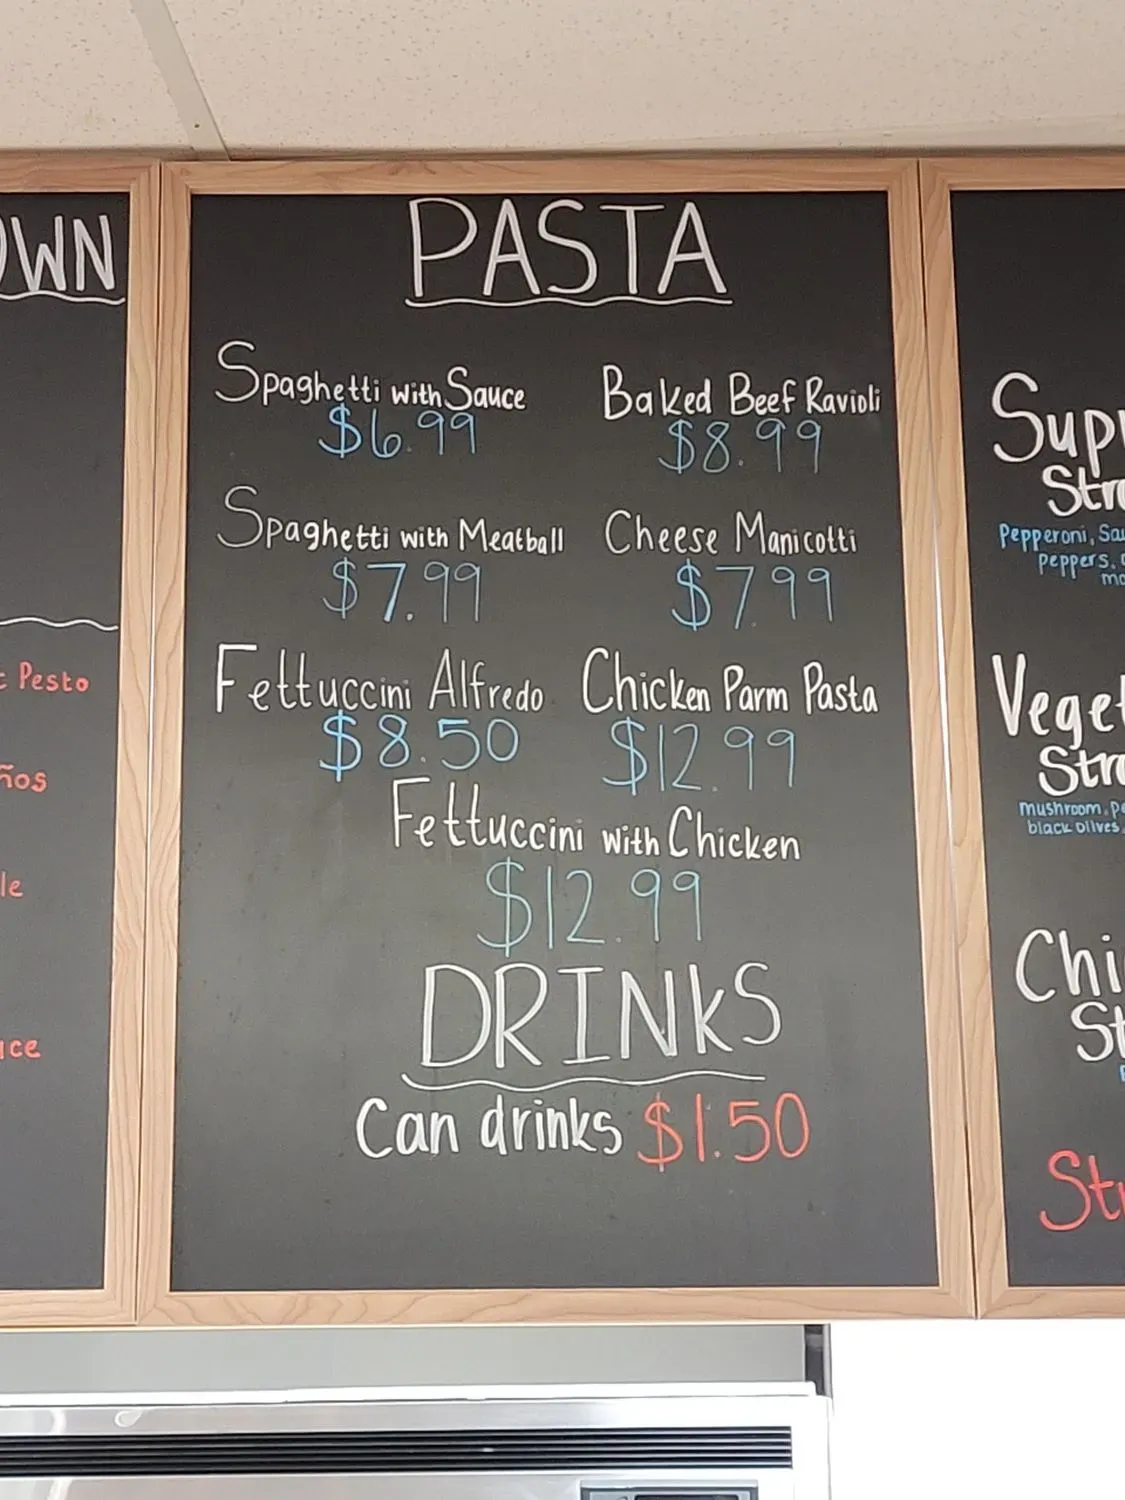 OWN
Pesto
ños
PASTA
Spaghetti with Sauce
$6.99
Baked Beef Ravioli
$8.99
Spaghetti with Meatball
$7.99
Cheese Manicotti
$7.99
Fettuccini Alfredo
$8.50
Chicken Parm Pasta
$12.99
Fettuccini with Chicken
$12.99
DRINKS
Can drinks $1.50
Pepperoni,
peppers,
mushroom,
black olives,